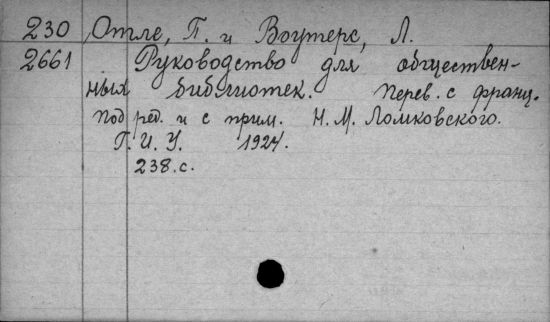 230 Отле, П. и Воутерс, Л.
2661 Руководство для обществен-
ных библиотек. Перев. с франц.
под ред. и с прим. Н. М. Ломковского.
Г. И. У. 1924.
238.с.